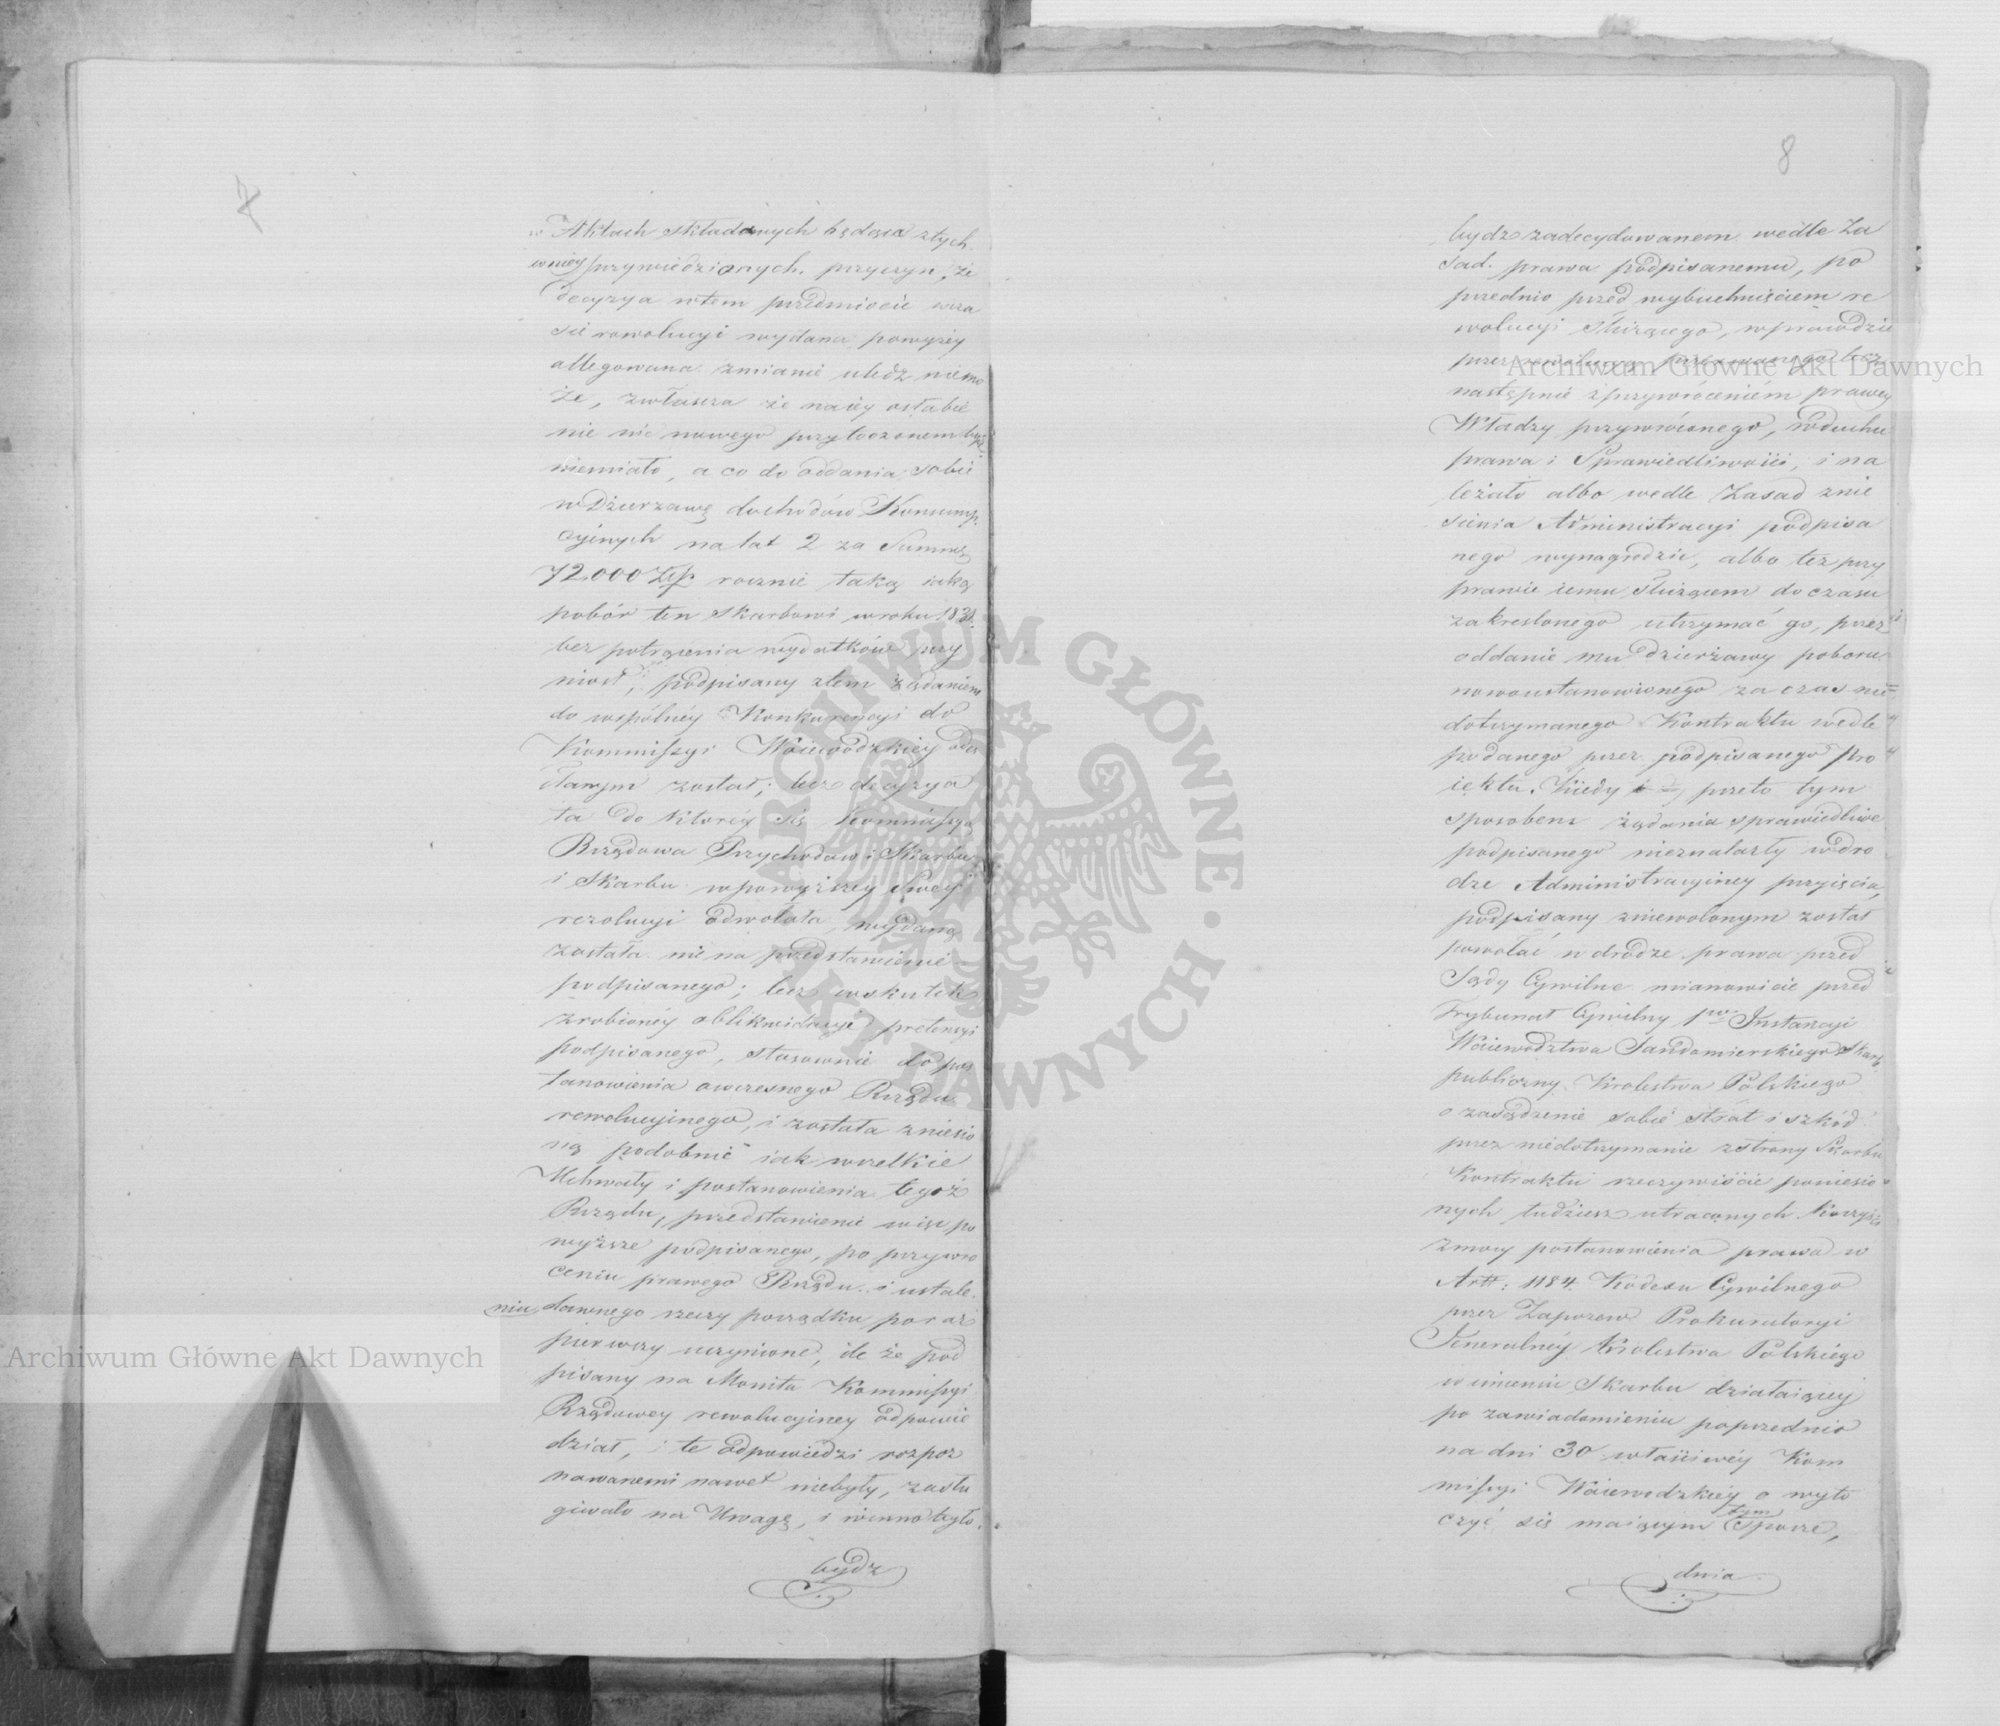 7
w Aktach składanych będąca z tych
w niéy przywiedzionych przyczyn, że
decyzya w tem przedmiocie w cza
sie rewolucyi wydana powyżéy
allegowana zmianie uledz niemo
że, zwłaszcza że na iéy osłabie
nie nic nowego przytoczonem bydź
niemiało, a co do oddania sobie
w Dzierzawę dochodów Konsump
cyinych na lat 2 za Summę
72.000 Złp. rocznie taką iaką
pobór ten Skarbowi w roku 1830.
bez potrącenia wydatków przy
niosł, podpisany z tem żądaniem
do wspólnéy Konkurencyi do
Kommissyi Woiewódzkiéy ode
słanym został; lecz decyzya
ta do któréy się Kommissya
Rządowa Przychodów i Skarbu
i Skarbu w powyższey Swey
rezolucyi odwołała, wydaną
została nie na przedstawienie
podpisanego; lecz w skutek
zrobionéy oblikwidacyi pretensyi
podpisanego, stosownie do pos
tanowienia owczesnego Rządu
rewolucyinego, i została zniesio
ną podobnie iak wszelkie
Uchwały i postanowienia tegoż
Rządu, przedstawienie więc po
wyższe podpisanego, po przywró
ceniu prawego Rządu i ustale
niu dawnego rzeczy porządku po raz
pierwszy uczynione, ile że pod
pisany na Monita Kommissyi
Rządowey rewolucyiney odpowie
dział, i te odpowiedzi rozpoz
nawanemi nawet niebyły, zasłu
giwało na Uwagę, i winno było
bydz
8
bydz zadecydowanem wedle Za
sad prawa podpisanemu, po
przednio przed wybuchnięciem re
wolucyi służącego, wprawdzie
przez rewolucyą przerwanego lecz
następnie z przywróceniem prawey
Władzy przywróconego, w duchu
prawa i Sprawiedliwości, i na
leżało albo wedle Zasad znie
sienia Administracyi podpisa
nego wynagrodzić, albo też przy
prawie iemu służącem do czasu
zakreslonego utrzymać go, przez
oddanie mu dzierżawy poboru
nowoustanowionego za czas nie
dotrzymanego Kontraktu wedle
podanego przez podpisanego Pro
iektu. Kiedy przeto tym
sposobem żądania sprawiedliwe
podpisanego nieznalazły w dro
dze Administracyiney przyięcia,
podpisany zniewolonym został
powołać w drodze prawa przed
Sądy Cywilne mianowicie przed
Trybunał Cywilny pwszy Instancyi
Woiewództwa Sandomierskiego Skarb
publiczny Krolestwa Polskiego
o zasądzenie sobie strat i szkód
przez niedotrzymanie z strony Skarbu
Kontraktu rzeczywiście poniesio
nych tudziesz utraconych Korzyści
z mocy postanowienia prawa w
Artt: 1184. Kodexu Cywilnego
przez Zapozew Prokuratoryi
Jeneralnéy Krolestwa Polskiego
w imieniu Skarbu działaiącéy
po zawiadomieniu poprzednio
na dni 30 właściwéy Kom
missyi Woiewodzkiéy o wyto
czyć się maiącym tym Sporze,
dnia
Archiwum Główne Akt Dawnych
Archiwum Główne Akt Dawnych
ARCHIWUM GŁÓWNE · AKT DAWNYCH ·